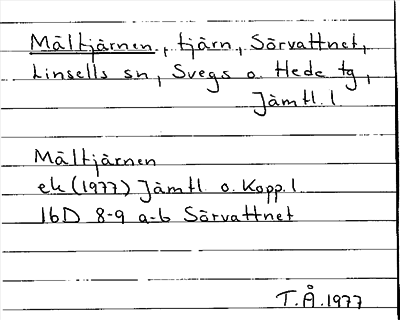 Måltjärnen, tjärn, Sörvattnet,
Linsells sn, Svegs o. Hede tg,
Jämtl. l
Måltjärnen
ek (1977) Jämtl o. Kopp. l
16D 8-9 a-b Sörvattnet
T.Å.1977